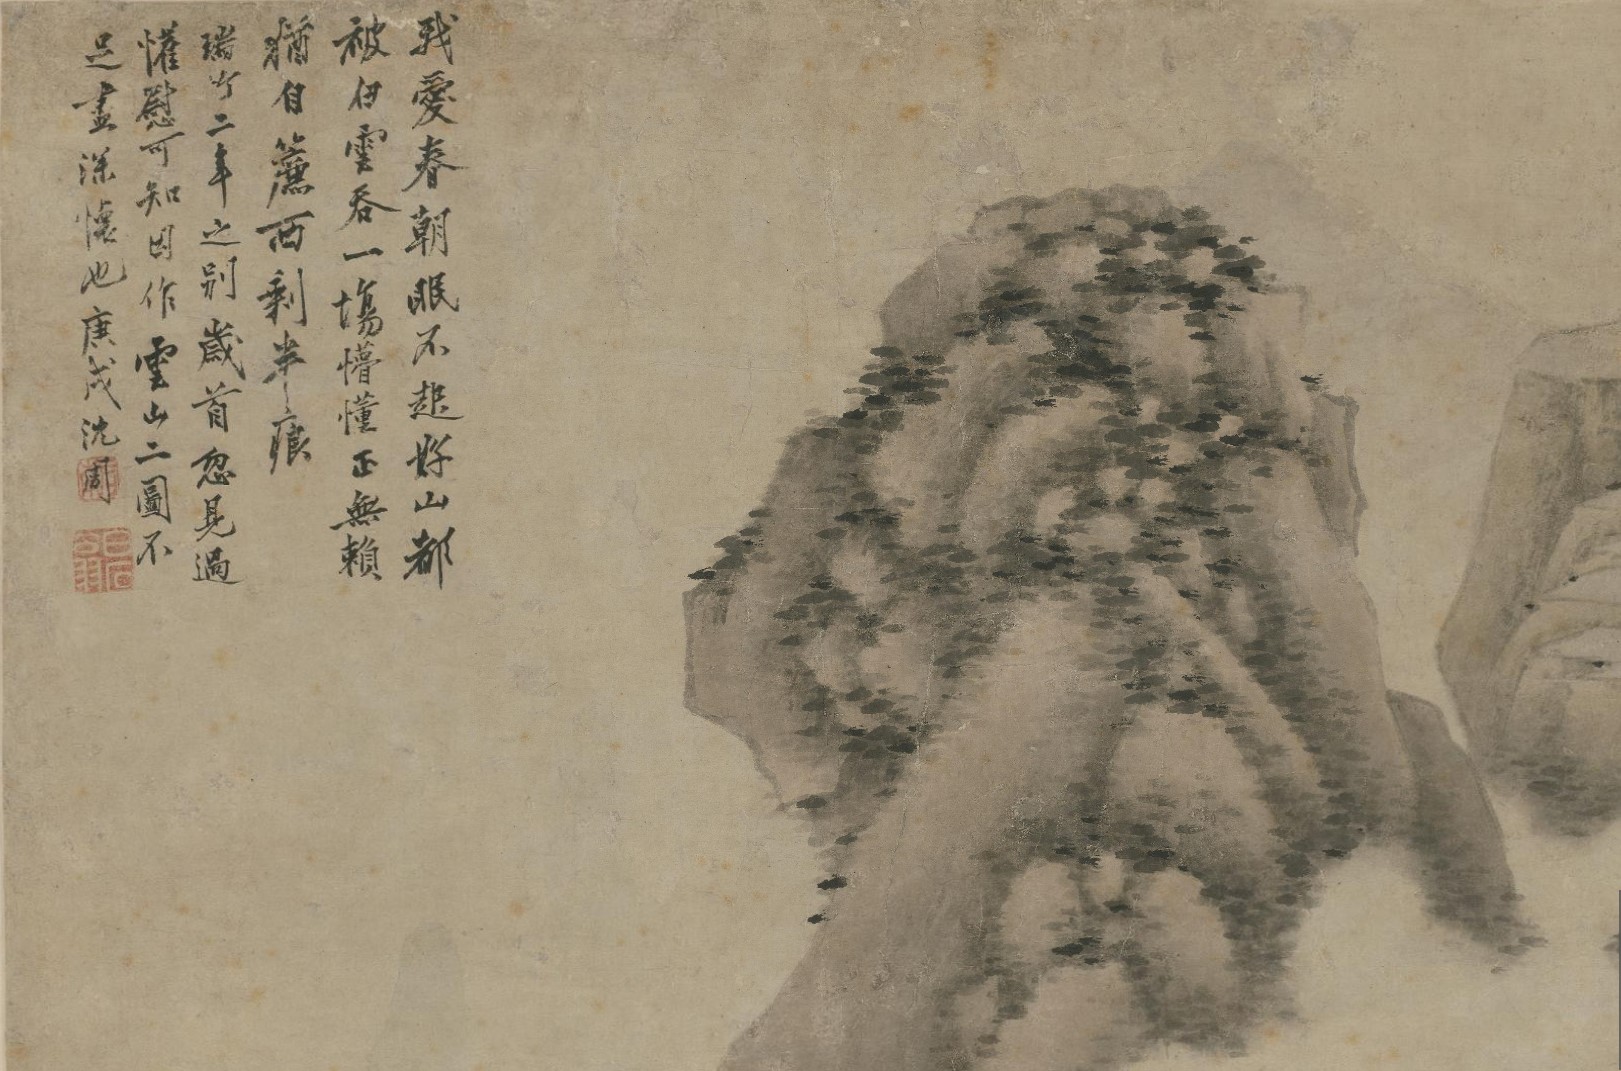 我愛春朝眠不起好山都
被白雲吞一場懵懂正無賴
猶自簾西剩半痕
瑞竹二年之別歲首忽見過
懽慰可知因作雲山二圖不
足盡深懷也庚戌沈周
啟南
石田